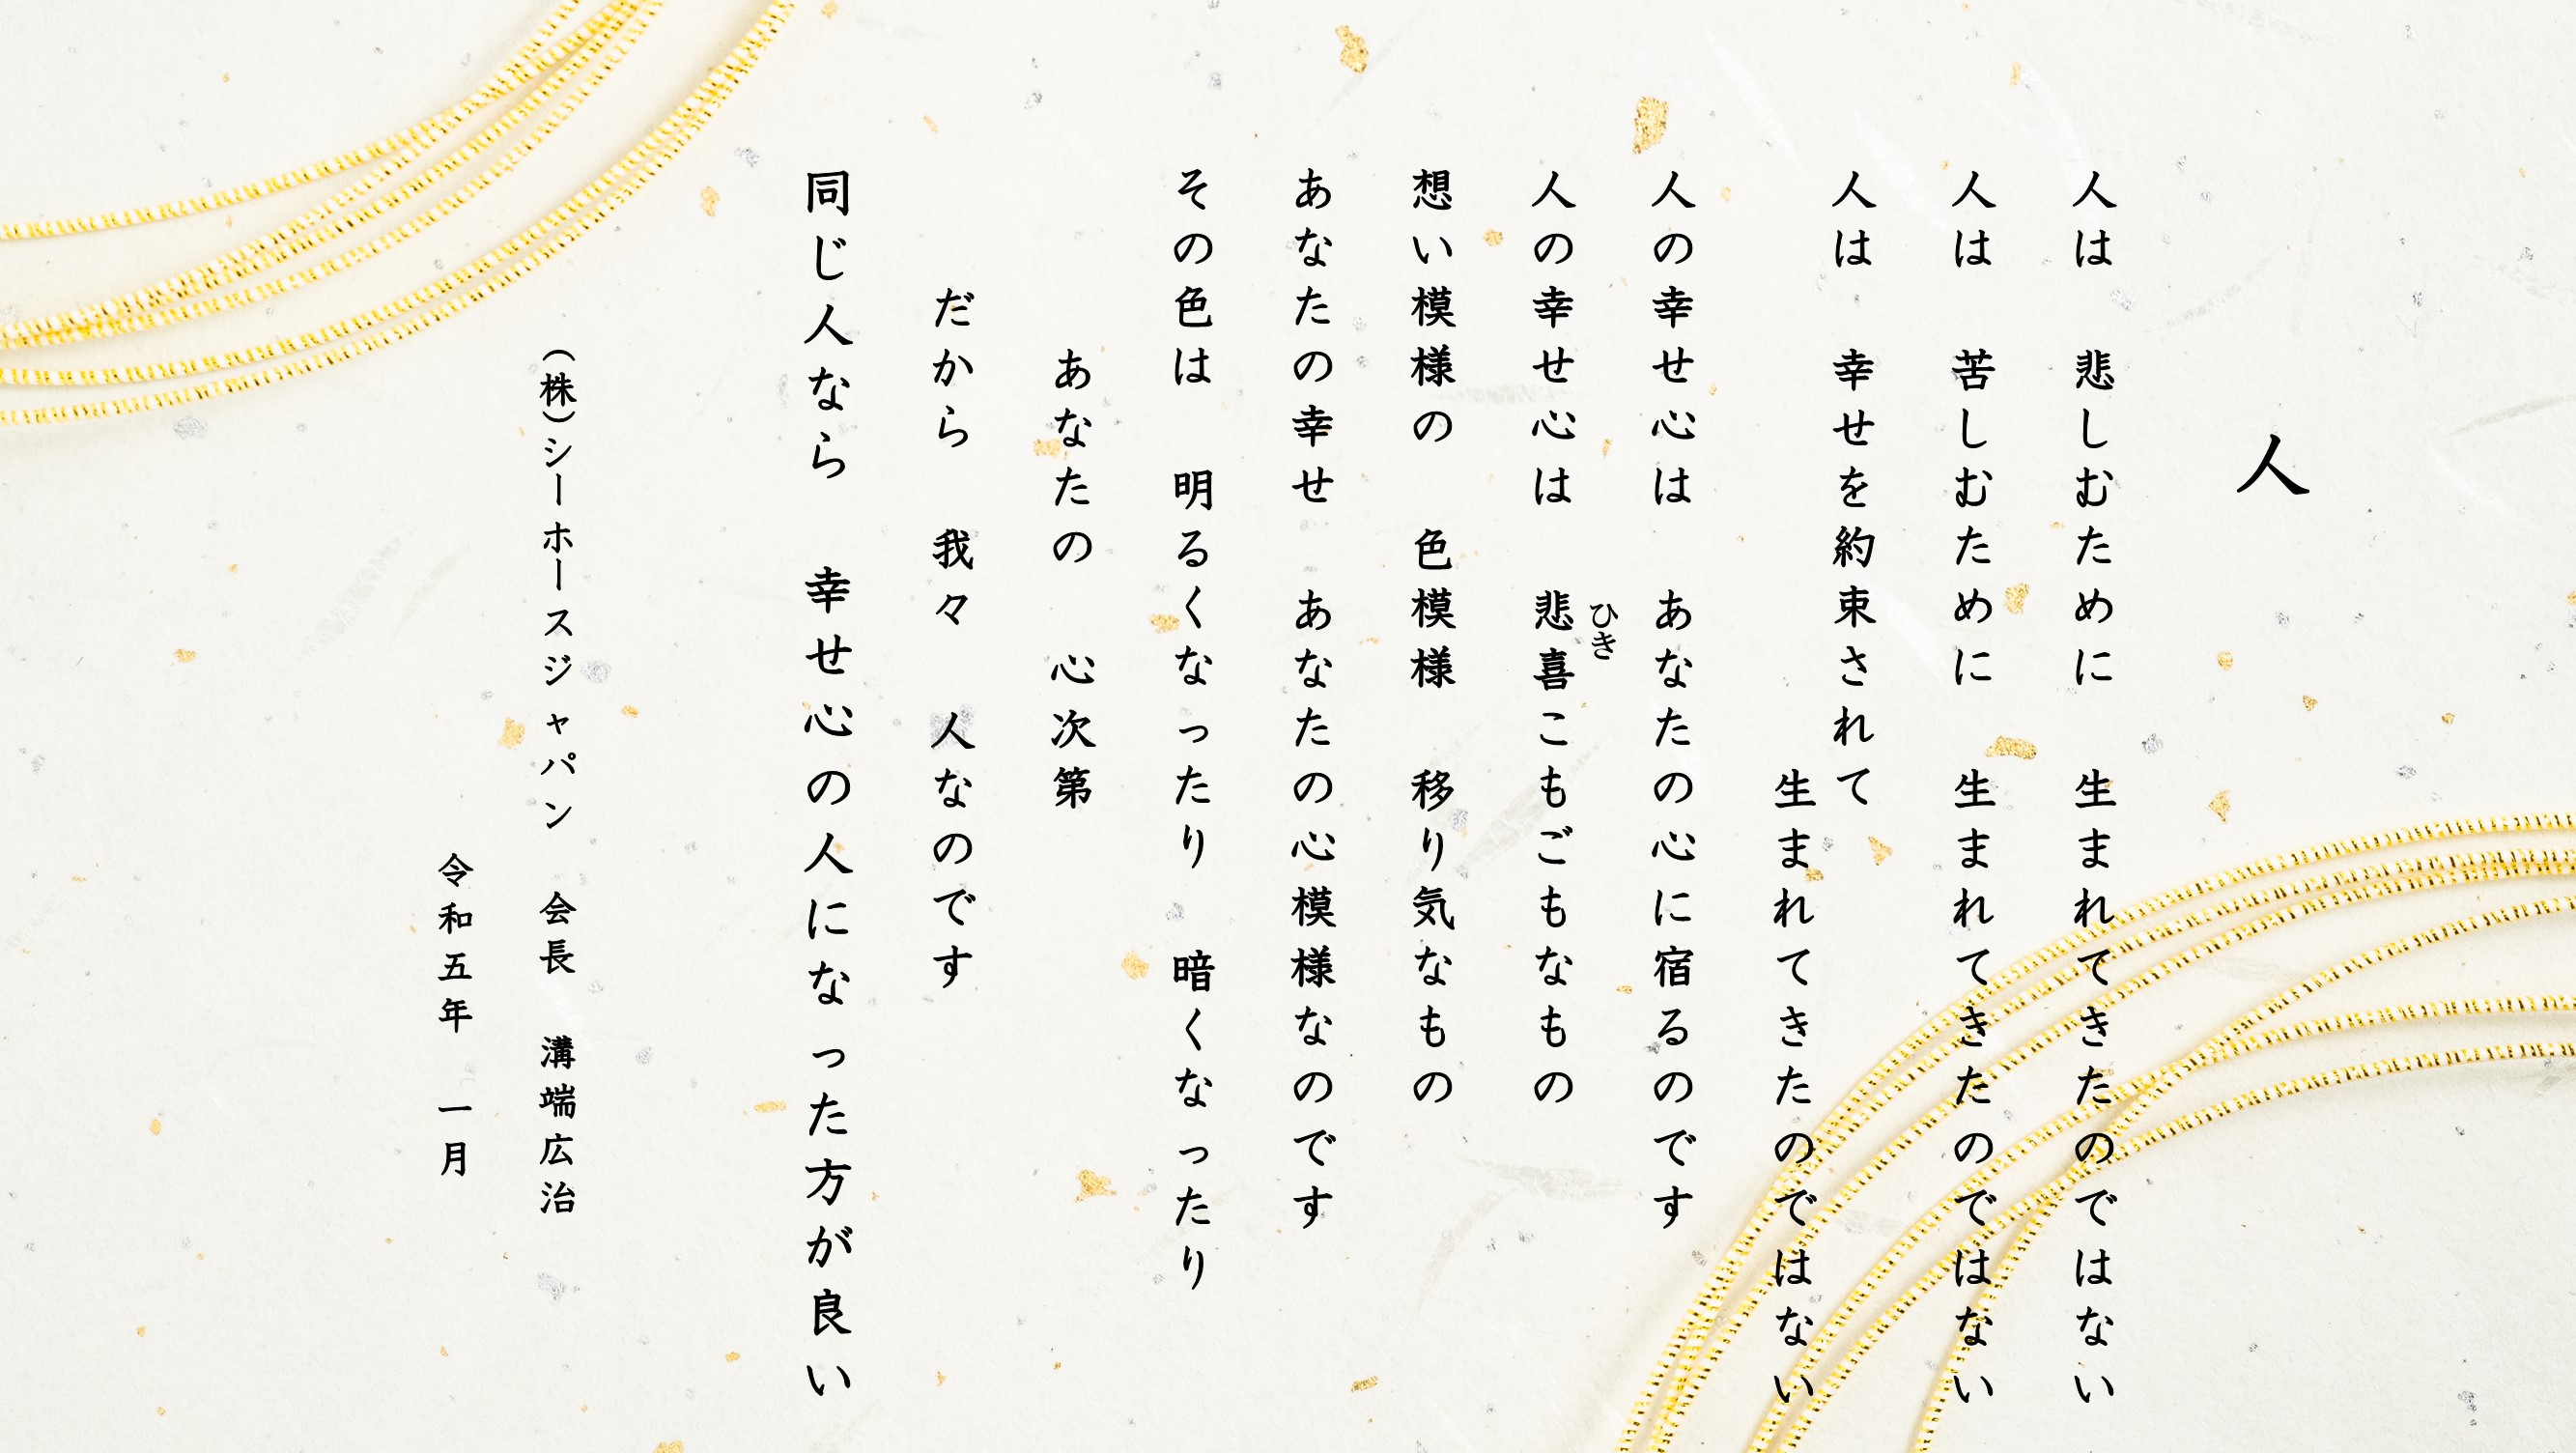 人
人は　悲しむために　生まれてきたのではない
人は　苦しむために　生まれてきたのではない
人は　幸せを約束されて
生まれてきたのではない
人の幸せ心は　あなたの心に宿るのです
ひき
人の幸せ心は　悲喜こもごもなもの
想い模様の　色模様　移り気なもの
あなたの幸せ　あなたの心模様なのです
その色は　明るくなったり　暗くなったり
あなたの　心次第
だから　我々　人なのです
同じ人なら　幸せ心の人になった方が良い
（株）シーホースジャパン　会長　溝端広治
令和五年　一月